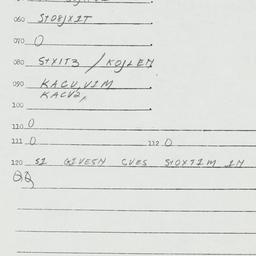 060 StO8JXIT
070 O
080 StXIT3 / KOJLEM
090 KACU,VIM
KACV2,
100
110 O
111 O 112 O
120 SI GIVESN CVES StOXTIM IN
QQ